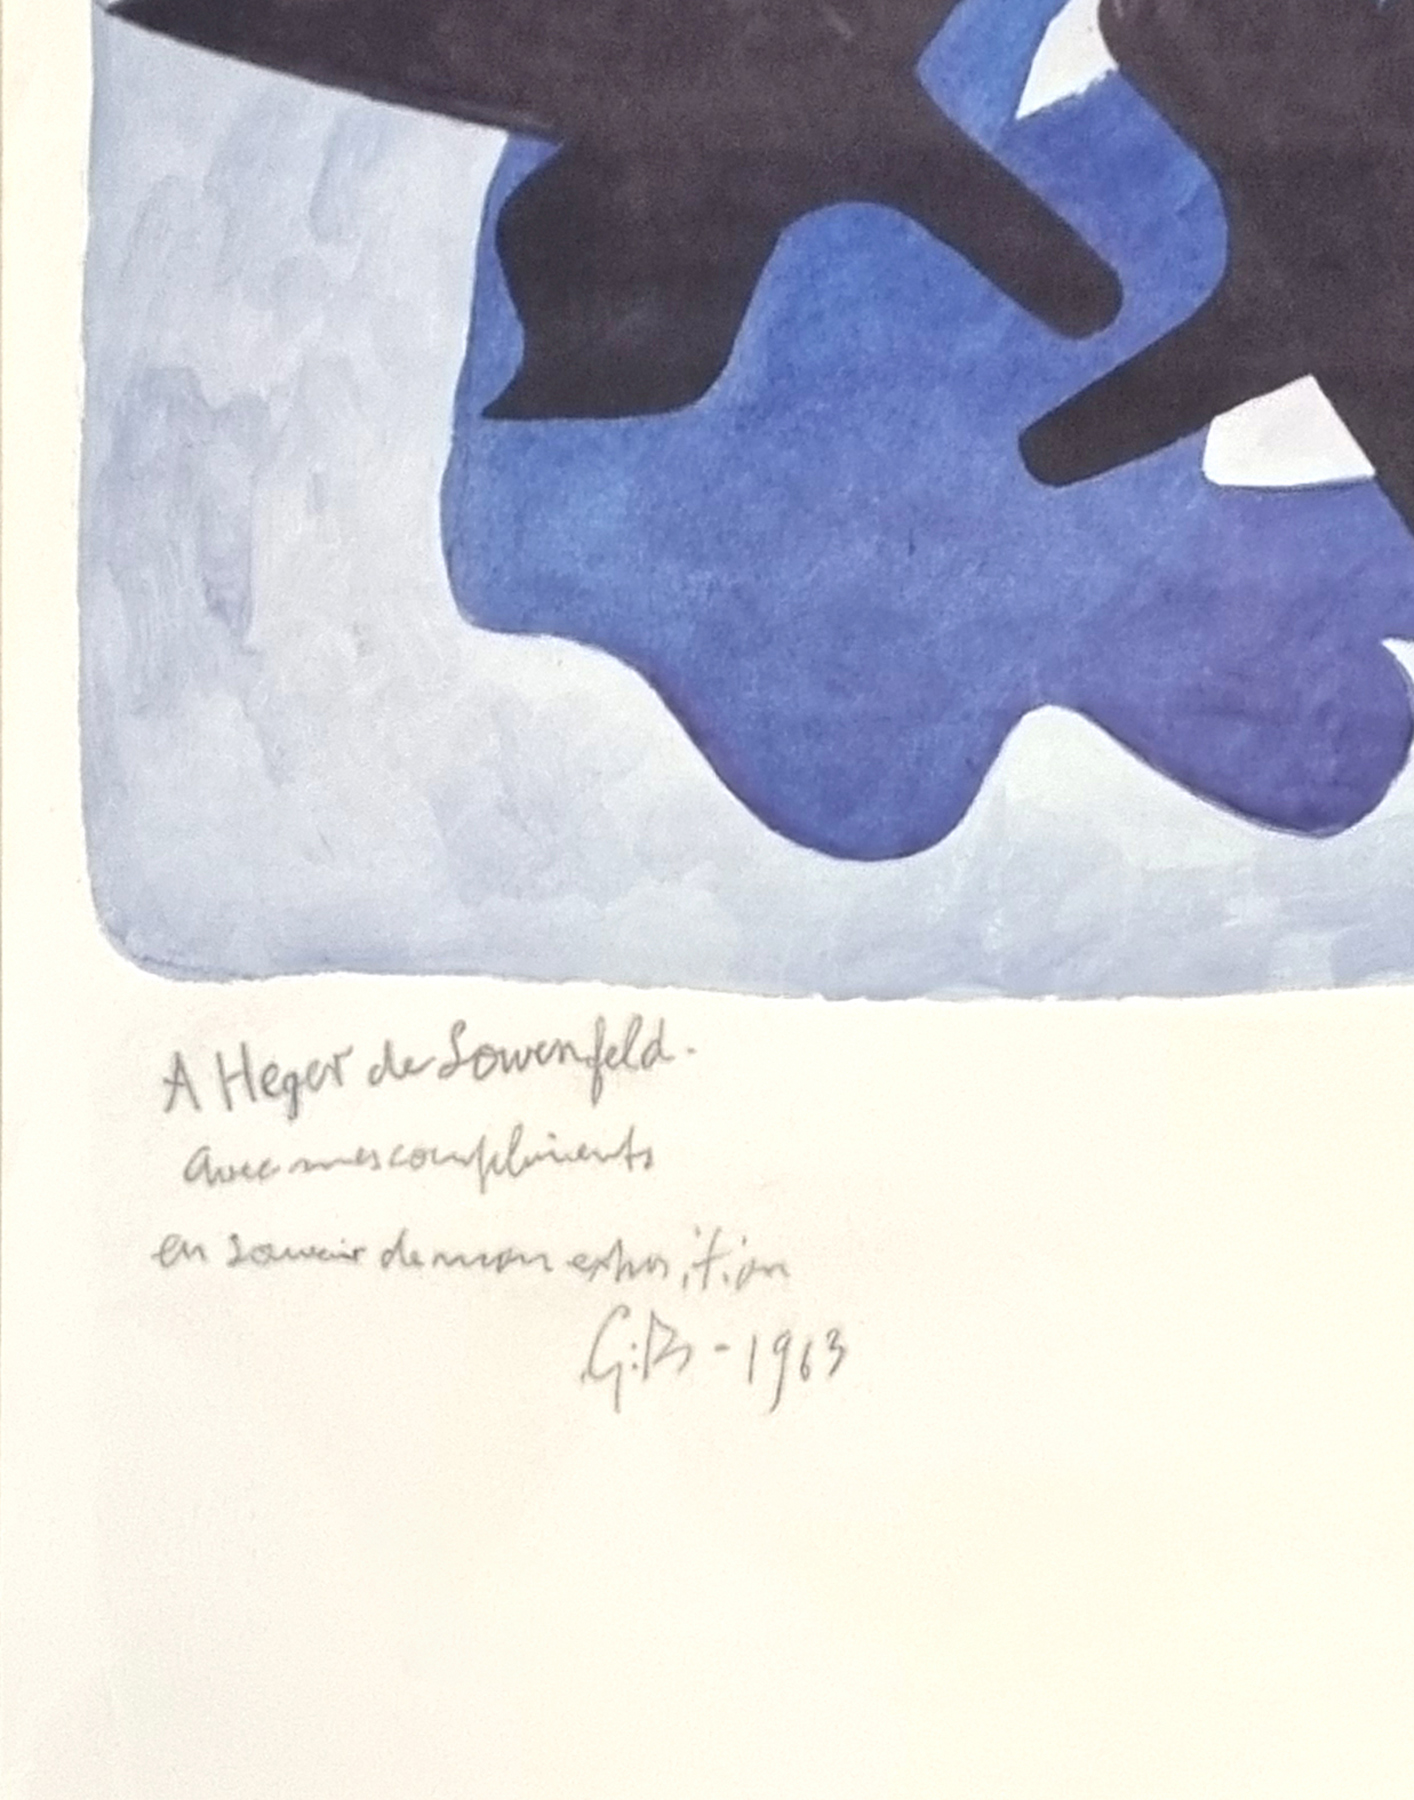 A Heger de Lowenfeld.
avec mes compliments
en souvenir de mon exposition
G:B - 1963